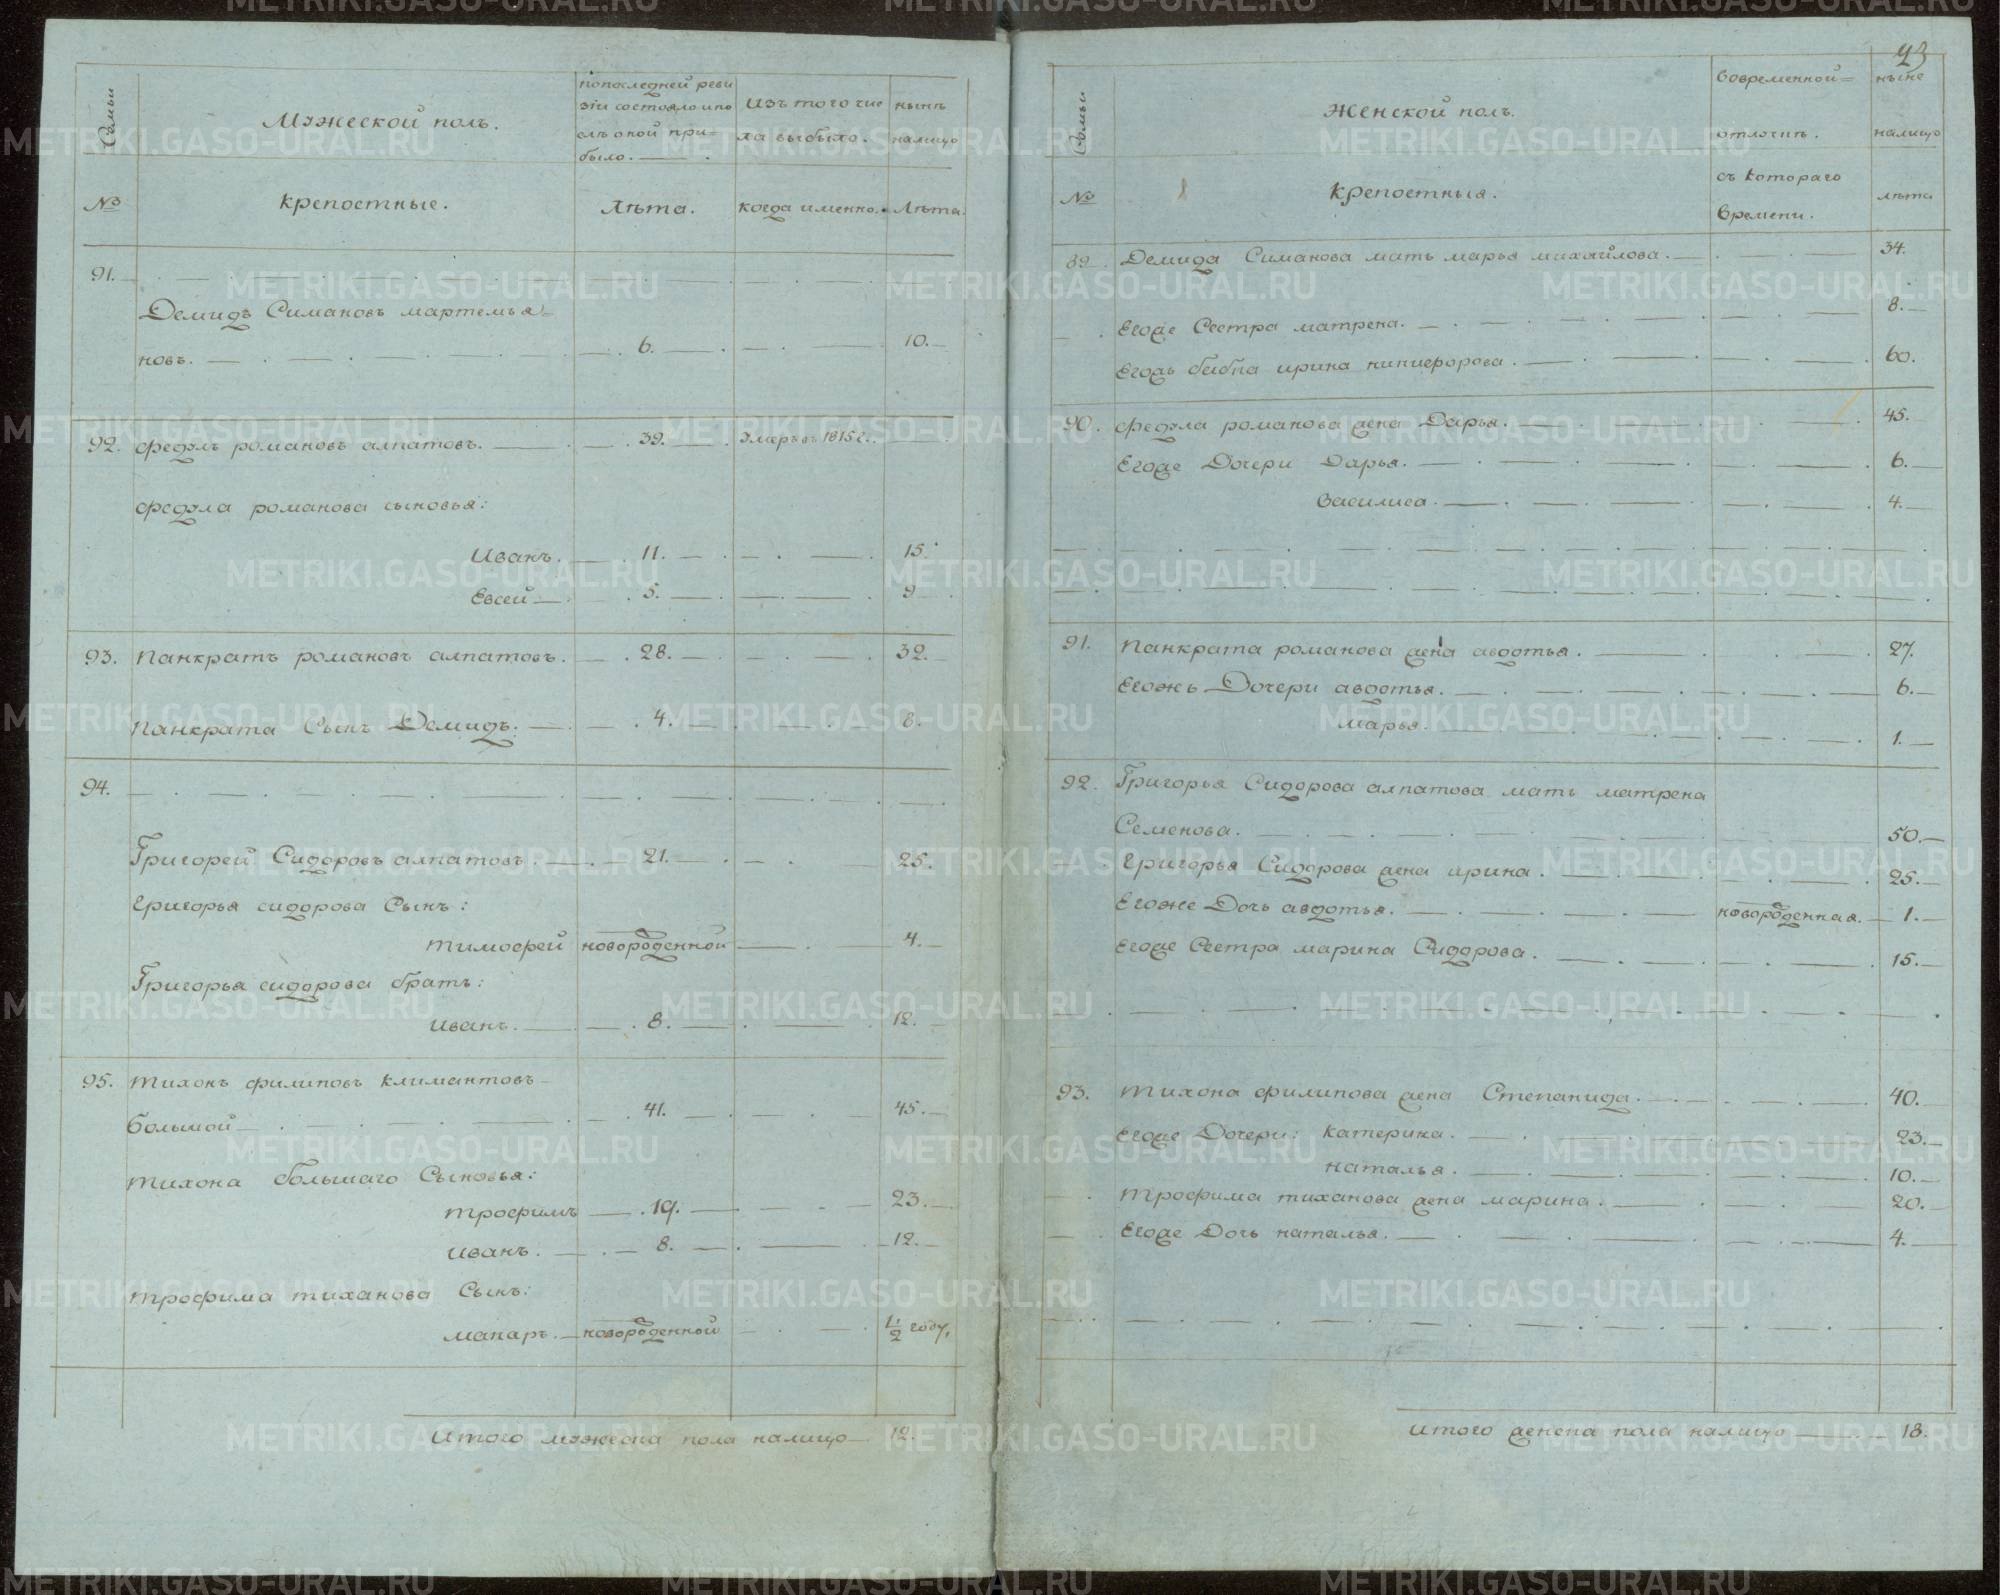 Семьи
Мужеской полъ.
попоследней реви
зіи состояло ипо
слѣ оной при=
было.
Изъ того чис
ла выбыло.
нынѣ
налицо
№
крепостные.
лѣта.
когда именно.
Лѣта.
91.
Демидъ Симановъ мартемья=
новъ. 6. 10.
92. Федулъ романовъ алпатовъ. 39. Умеръ въ 1815 г.
Федула романова сыновья:
Иванъ. 11. 15.
Евсей 5. 9
93. Панкратъ романовъ алпатовъ. 28. 32.
Панкрата Сынъ Демидъ. 4. 8.
94.
Григорей Сидоровъ алпатовъ. 21. 25.
Григорья сидорова Сынъ:
тимофей новорожденной 4.
Григорья сидорова братъ:
иванъ. 8. 12.
95. тихонъ филиповъ климантовъ
большой 41. 45.
тихона большаго Сыновья:
трофимъ 19. 23.
иванъ. 8. 12.
трофима тиханова Сынъ:
макаръ. новорожденной 1/2 году.
Итого мужеска пола налицо 12.
23
Семьи
Женской полъ.
Современной=
отлучкѣ.
ныне
налицо
№
крепостныя.
съ котораго
времени.
лѣта
89. Демида Симанова мать марья михайлова. 34.
Егоже Сестра матрена. 8.
Егожь бабка ирина никифорова. 60.
90. Федула романова жена Дарья. 45.
Егоже Дочери Дарья. 6.
Василиса. 4.
91. Панкрата романова жена авдотья. 27.
Егожъ Дочери авдотья. 6.
марья. 1.
92. Григорья Сидорова алпатова мать матрена
Семенова. 50.
Григорья Сидорова жена ирина. 25.
Егоже Дочь авдотья. новорожденная. 1.
Егоже Сестра марина Сидорова. 15.
93. тихона филипова жена Степанида. 40.
Егоже Дочери: катерина. 23.
наталья. 10.
трофима тиханова жена марина. 20.
Егоже Дочь наталья. 4.
итого женска пола налицо 18.
METRIKI.GASO-URAL.RU